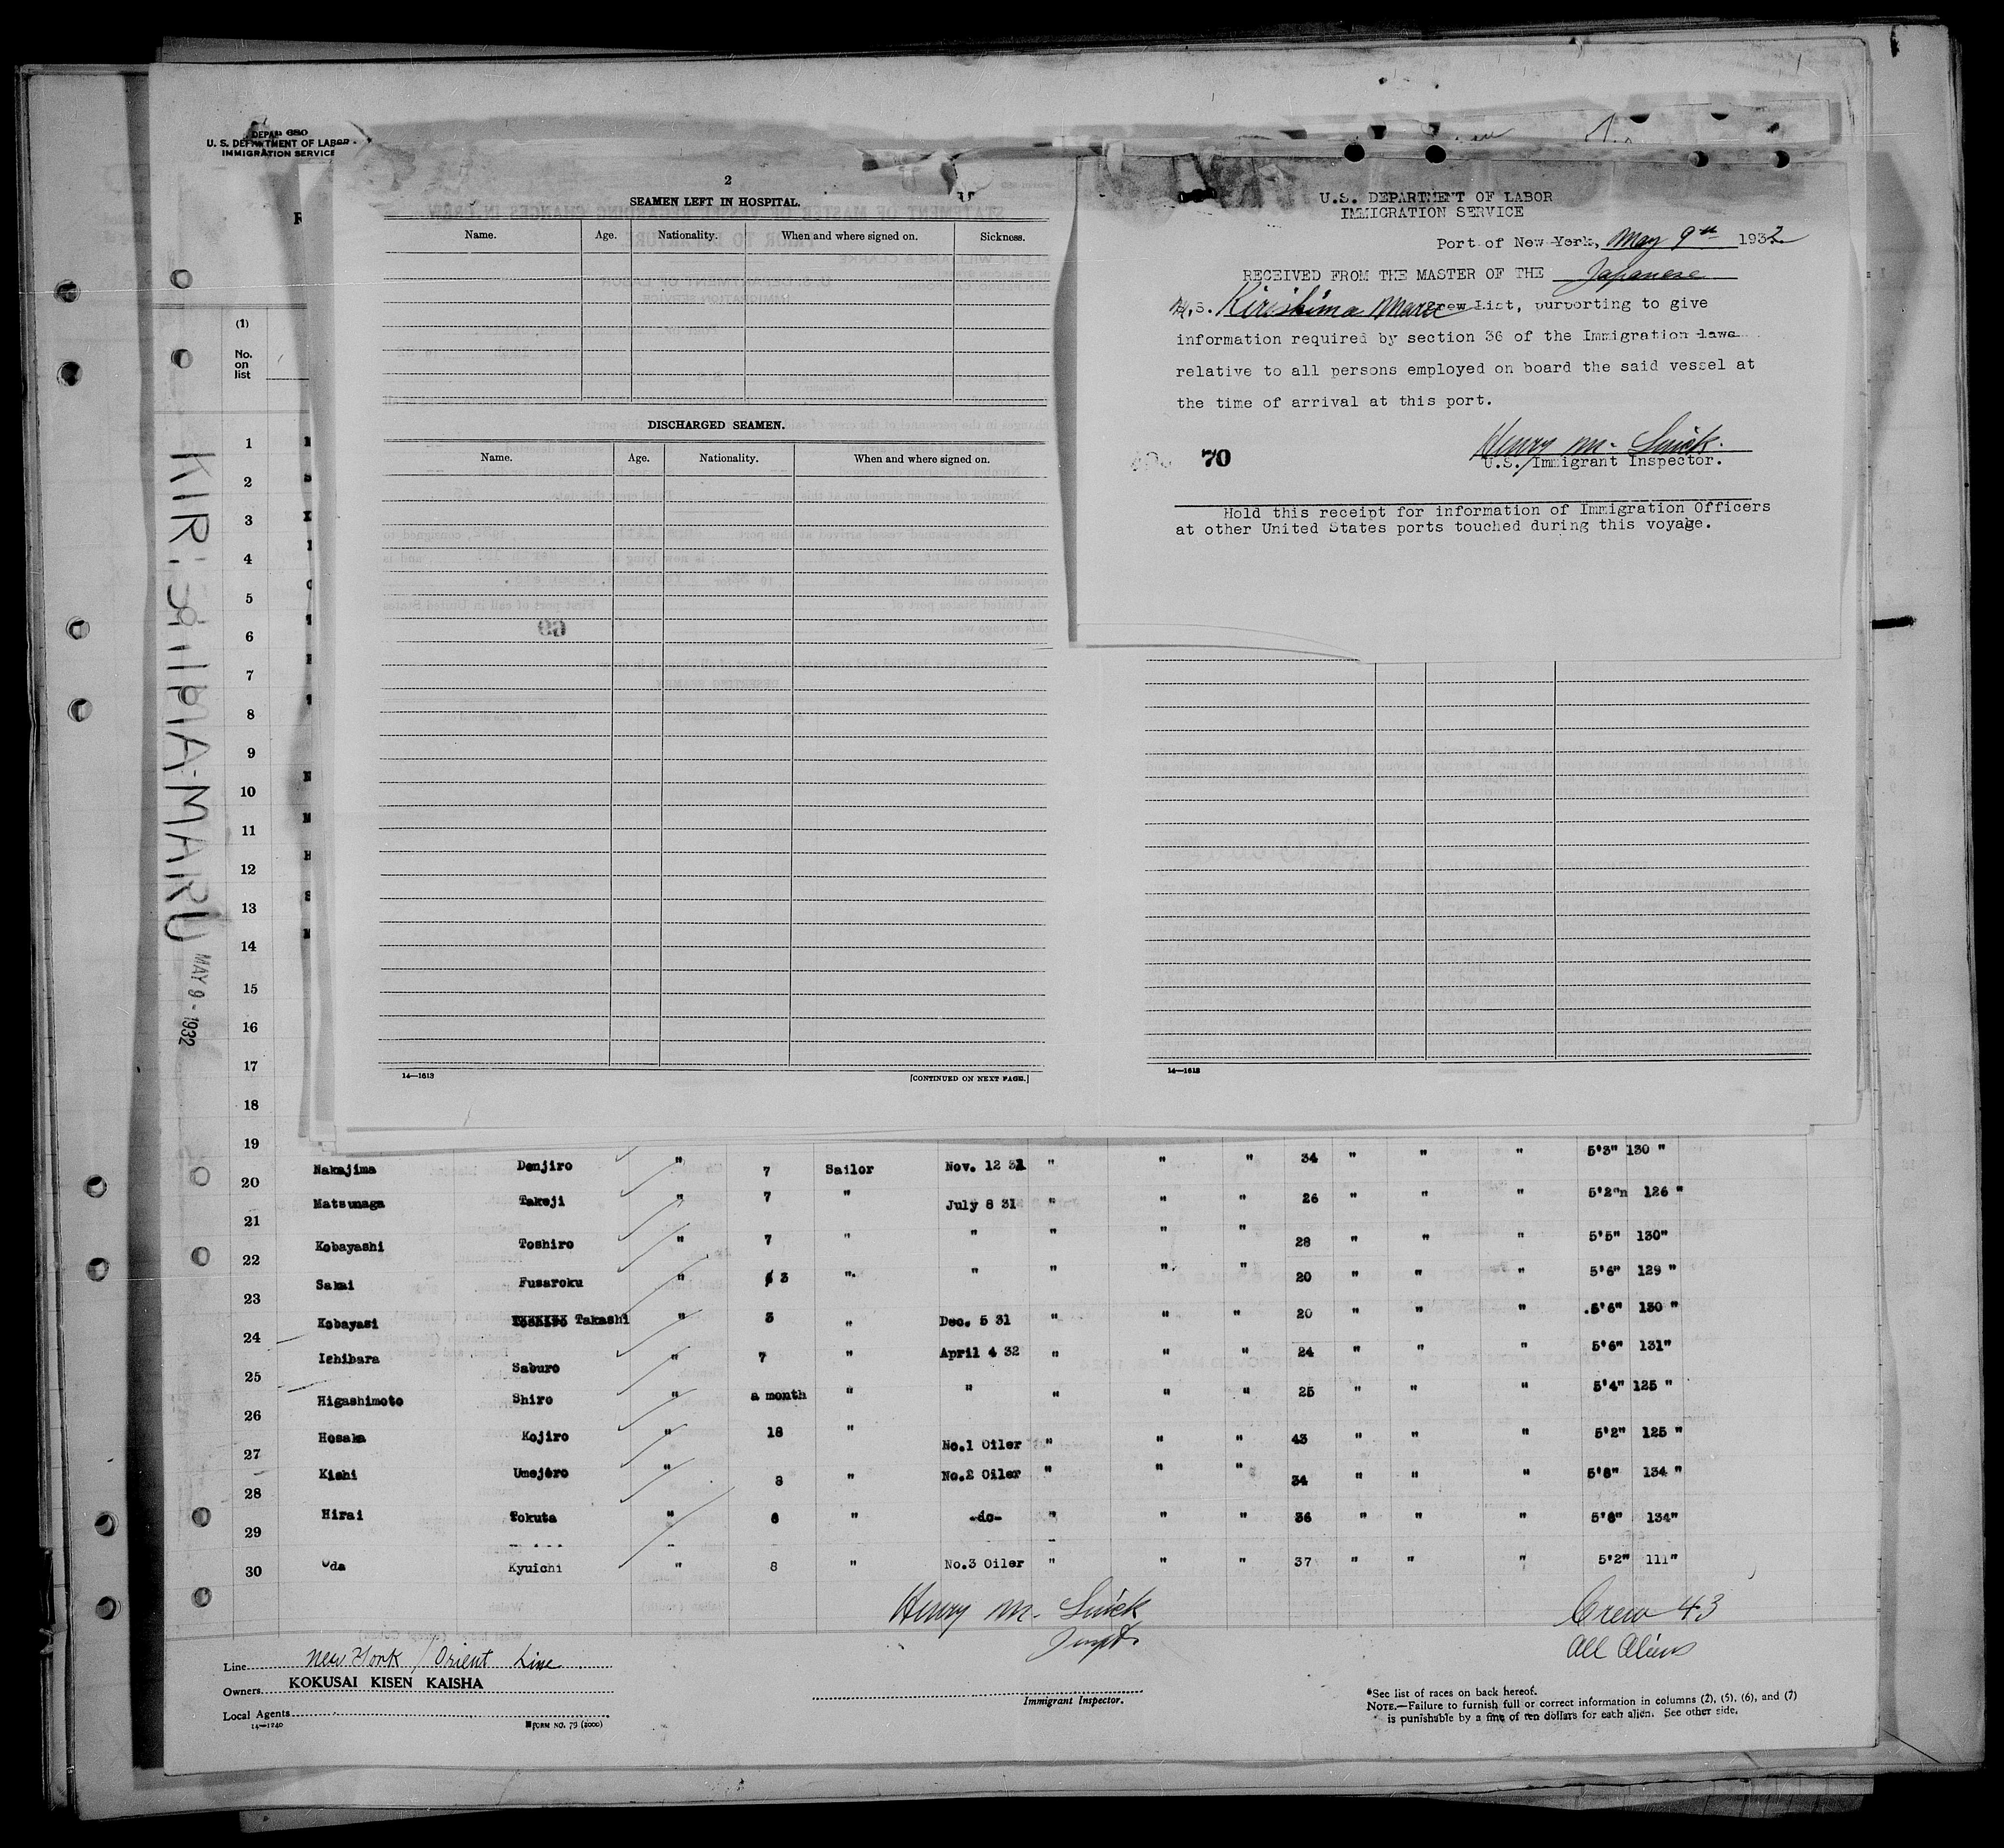 U. S. DEPARTMENT OF LABOR
IMMIGRATION SERVICE
(1)
No.
on
list
1
2
3
4
5
6
7
8
9
10
11
12
13
14
15
16
17
18
19
KIRISHIMA-MARU MAY 9 - 1932
2
SEAMEN LEFT IN HOSPITAL.
Name. Age. Nationality. When and where signed on. Sickness.
DISCHARGED SEAMEN.
Name. Age. Nationality. When and where signed on.
14—1613 [CONTINUED ON NEXT PAGE.]
14—1613
U.S. DEPARTMENT OF LABOR
IMMIGRATION SERVICE
Port of New York, May 9th 1932
RECEIVED FROM THE MASTER OF THE Japanese
M.S. Kirishima Maru crew list, purporting to give
information required by section 36 of the Immigration laws
relative to all persons employed on board the said vessel at
the time of arrival at this port.
70
Henry M. Quick
U.S. Immigrant Inspector.
Hold this receipt for information of Immigration Officers
at other United States ports touched during this voyage.
Nakajima Denjiro " 7 Sailor Nov. 12 31 " " " 34 " " " 5'3" 130 "
20 Matsunaga Takeji " 7 " July 8 31 " " 26 " " " 5'2" 126 "
21 Kobayashi Toshiro " 7 " " " " " 28 " " " 5'5" 130"
22 Sakai Fusaroku " 3 " " " " " 20 " " " 5'6" 129 "
23 Kobayasi Takashi " 3 " Dec. 5 31 " " " 20 " " " 5'6" 130 "
24 Ichihara Saburo " 7 " April 4 32 " " " 24 " " " 5'6" 131"
25 Higashimoto Shiro " a month " " " " " 25 " " " 5'4" 125 "
26 Hosaka Kojiro " 18 " No.1 Oiler " " " 43 " " " 5'2" 125 "
27 Kishi Umejiro " 8 " No.2 Oiler " " " 34 " " " 5'8" 134 "
28 Hirai Tokuta " 8 " -do- " " " 36 " " " 5'8" 134"
29
30 Oda Kyuichi " 8 " No.3 Oiler " " " 37 " " " 5'2" 111"
Henry M. Quick
Inspt.
Crew 43
All Aliens
Line New York / Orient Line
Owners KOKUSAI KISEN KAISHA
Local Agents
14—1240 FORM NO. 79 (2000)
Immigrant Inspector.
*See list of races on back hereof.
NOTE.—Failure to furnish full or correct information in columns (2), (5), (6), and (7)
is punishable by a fine of ten dollars for each alien. See other side.